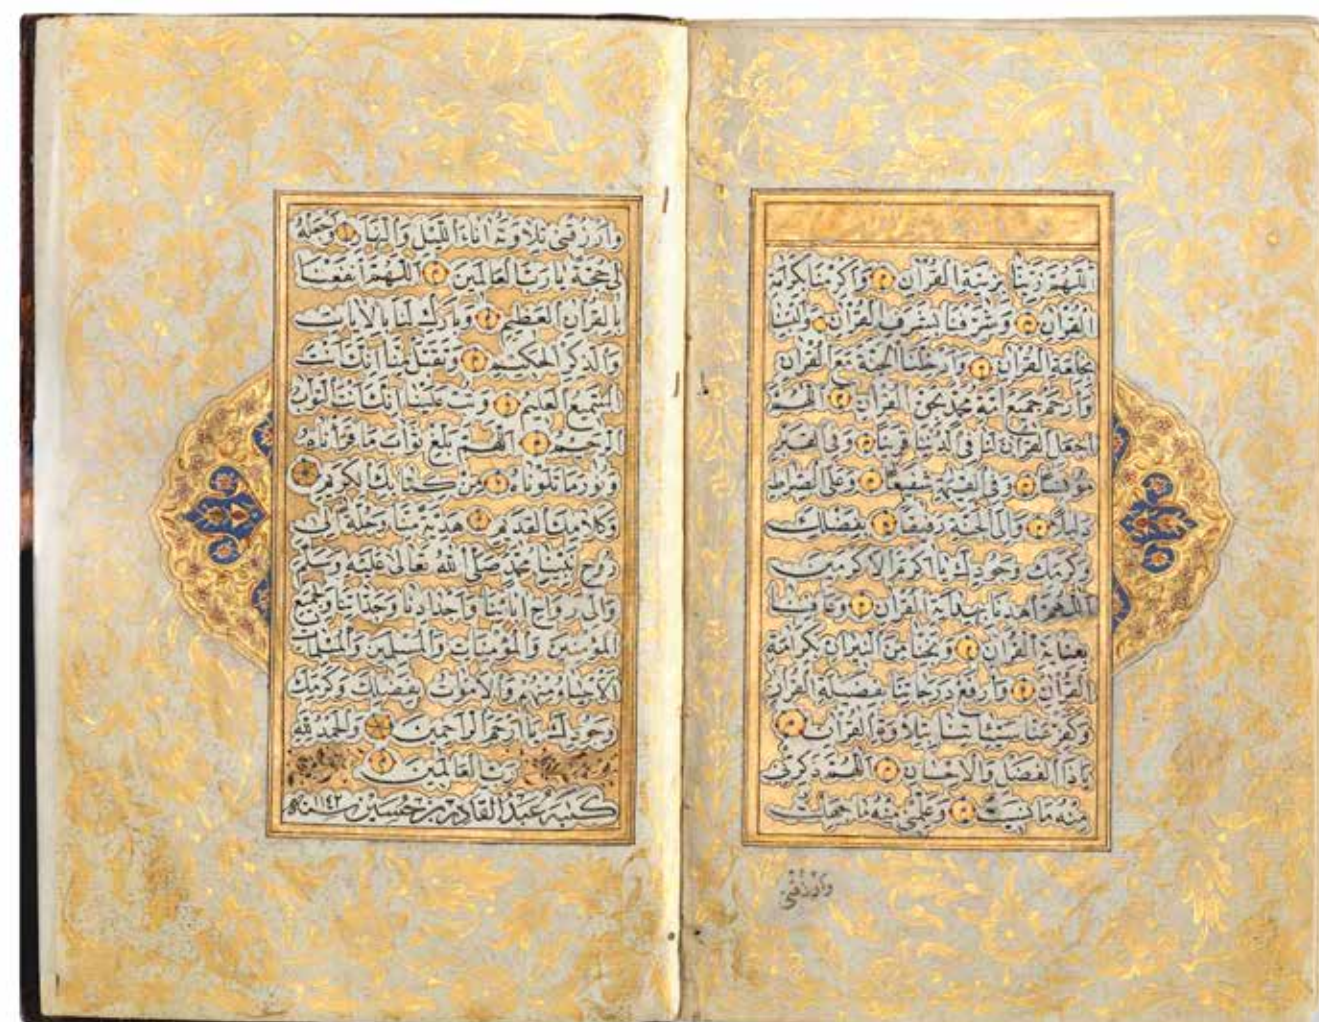 اللهم زينا بزينة القرآن واكرمنا بكرامة
القرآن وشرفنا بشرف القرآن والبسنا
بخلعة القرآن وادخلنا الجنة مع القرآن
وارحم جميع امة محمد بحق القرآن اللهم
اجعل القرآن لنا في الدنيا قرينا وفي القبر
مونسا وفي القيمة شفيعا وعلى الصراط
دليلا والى الجنة رفيقا بفضلك
وكرمك وجودك يا اكرم الاكرمين
اللهم اهدنا بهداية القرآن وعافنا
بعناية القرآن ونجنا من النيران بكرامة
القرآن وارفع درجاتنا بفضيلة القرآن
وكفر عنا سيئاتنا بتلاوة القرآن
ياذا الفضل والاحسان اللهم ذكرني
منه ما نسيت وعلمني منه ما جهلت
وارزقني
وارزقني تلاوته اناء الليل والنهار واجعله
لي حجة يا رب العالمين اللهم انفعنا
بالقرآن العظيم وبارك لنا بالايات
والذكر الحكيم وتقبل منا انك انت
السميع العليم وتب علينا انك انت التواب
الرحيم اللهم بلغ ثواب ما قراناه
ونور ما تلوناه من كتابك الكريم
وكلامك القديم هدية منا وصلة الى
روح نبينا محمد صلى الله تعالى عليه وسلم
والى ارواح ابائنا واجدادنا وجداتنا ولجميع
المؤمنين والمؤمنات والمسلمين والمسلمات
الاحياء منهم والاموات بفضلك وكرمك
وجودك يا ارحم الراحمين والحمد لله
رب العالمين
كتبه عبد القادر بن حسين سنة ١١٤٢